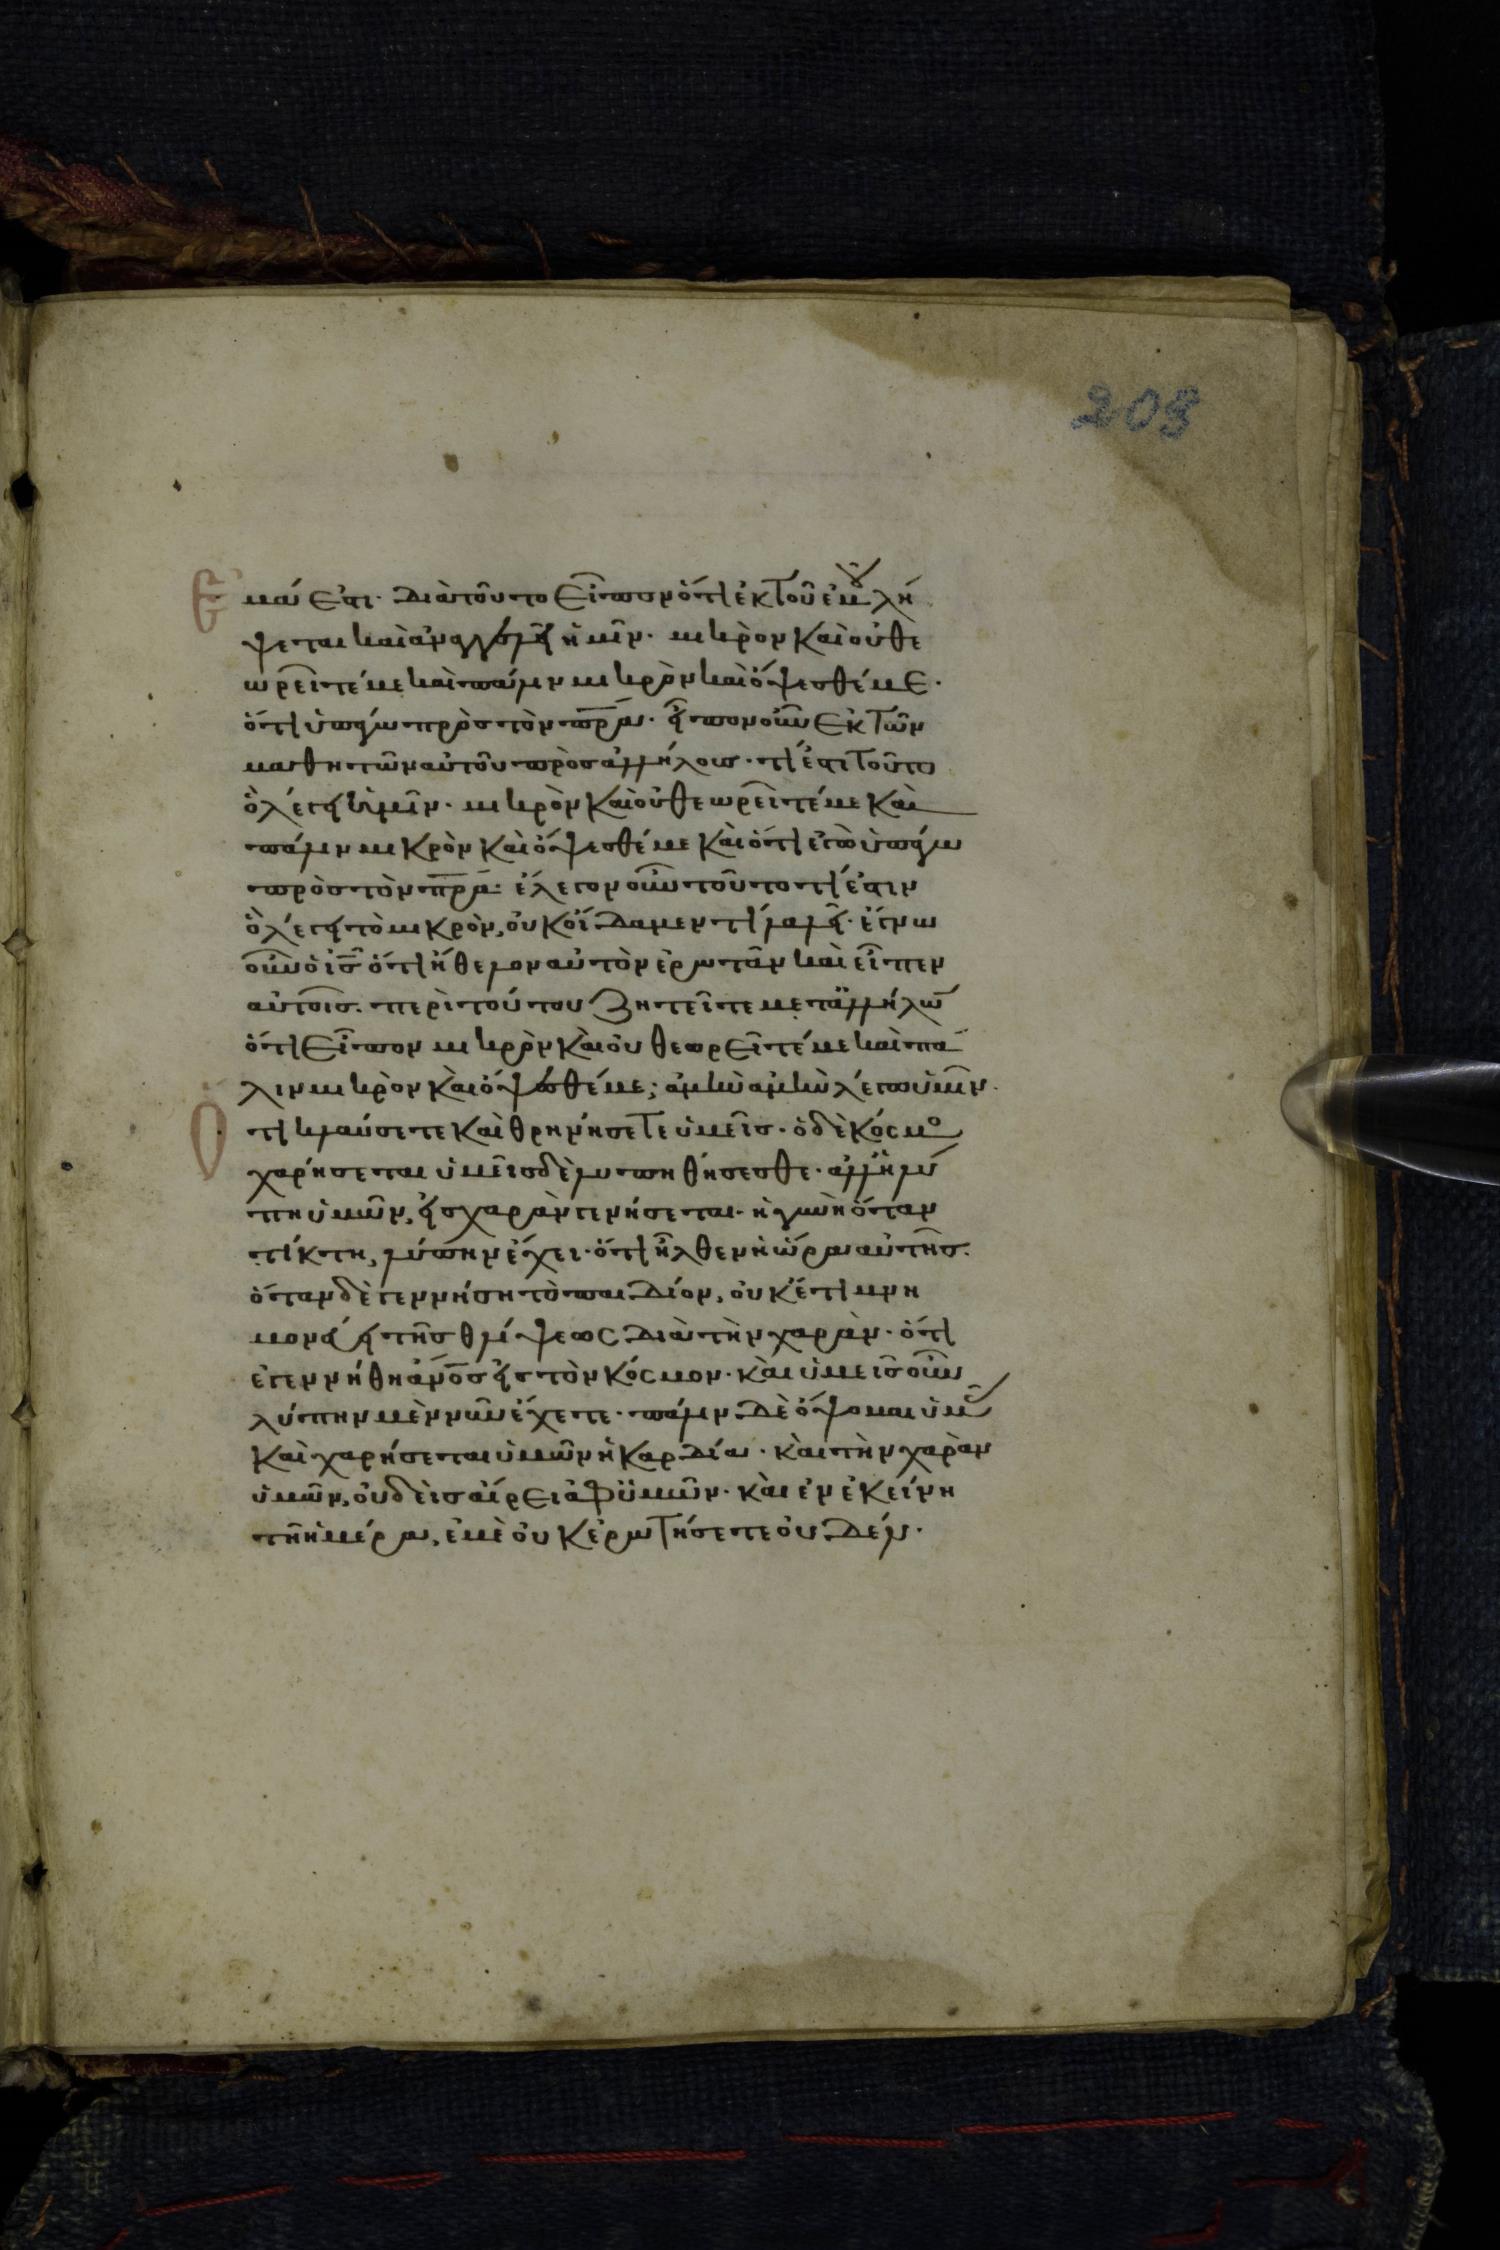 203
Ἐμά ἐστι· διὰ τοῦτο εἶπον ὅτι ἐκ τοῦ ἐμοῦ λή
ψεται καὶ ἀναγγελεῖ ἡμῖν· μικρὸν καὶ οὐ θε
ωρεῖτέ με καὶ πάλιν μικρὸν καὶ ὄψεσθέ με·
ὅτι ὑπάγω πρὸς τὸν πρα· εἶπον οὖν ἐκ τῶν
μαθητῶν αὐτοῦ πρὸς ἀλλήλους· τί ἐστι τοῦτο
ὃ λέγει ἡμῖν· μικρὸν καὶ οὐ θεωρεῖτέ με καὶ
πάλιν μικρὸν καὶ ὄψεσθέ με καὶ ὅτι ἐγὼ ὑπάγω
πρὸς τὸν πρα· ἔλεγον οὖν τοῦτο τί ἐστιν
ὃ λέγει τὸ μικρὸν, οὐκ οἴδαμεν τί λαλεῖ· ἔγνω
οὖν ὁ ις ὅτι ἤθελον αὐτὸν ἐρωτᾶν καὶ εἶπεν
αὐτοῖς· περὶ τούτου ζητεῖτε μετ' ἀλλήλων
ὅτι εἶπον μικρὸν καὶ οὐ θεωρεῖτέ με καὶ πά
λιν μικρὸν καὶ ὄψεσθέ με; ἀμὴν ἀμὴν λέγω ὑμῖν·
Ὅτι κλαύσετε καὶ θρηνήσετε ὑμεῖς· ὁ δὲ κόσμος
χαρήσεται ὑμεῖς δὲ λυπηθήσεσθε· ἀλλ' ἡ λύ
πη ὑμῶν, εἰς χαρὰν γενήσεται· ἡ γυνὴ ὅταν
τίκτη, λύπην ἔχει· ὅτι ἦλθεν ἡ ὥρα αὐτῆς·
ὅταν δὲ γεννήση τὸ παιδίον, οὐκέτι μνη
μονεύει τῆς θλίψεως διὰ τὴν χαρὰν· ὅτι
ἐγεννήθη ἀνος εἰς τὸν κόσμον· καὶ ὑμεῖς οὖν
λύπην μὲν νῦν ἔχετε· πάλιν δὲ ὄψομαι ὑμᾶς
καὶ χαρήσεται ὑμῶν ἡ καρδία· καὶ τὴν χαρὰν
ὑμῶν, οὐδεὶς αἴρει ἀφ' ὑμῶν· καὶ ἐν ἐκείνη
τῆ ἡμέρα, ἐμὲ οὐκ ἐρωτήσετε οὐδέν·